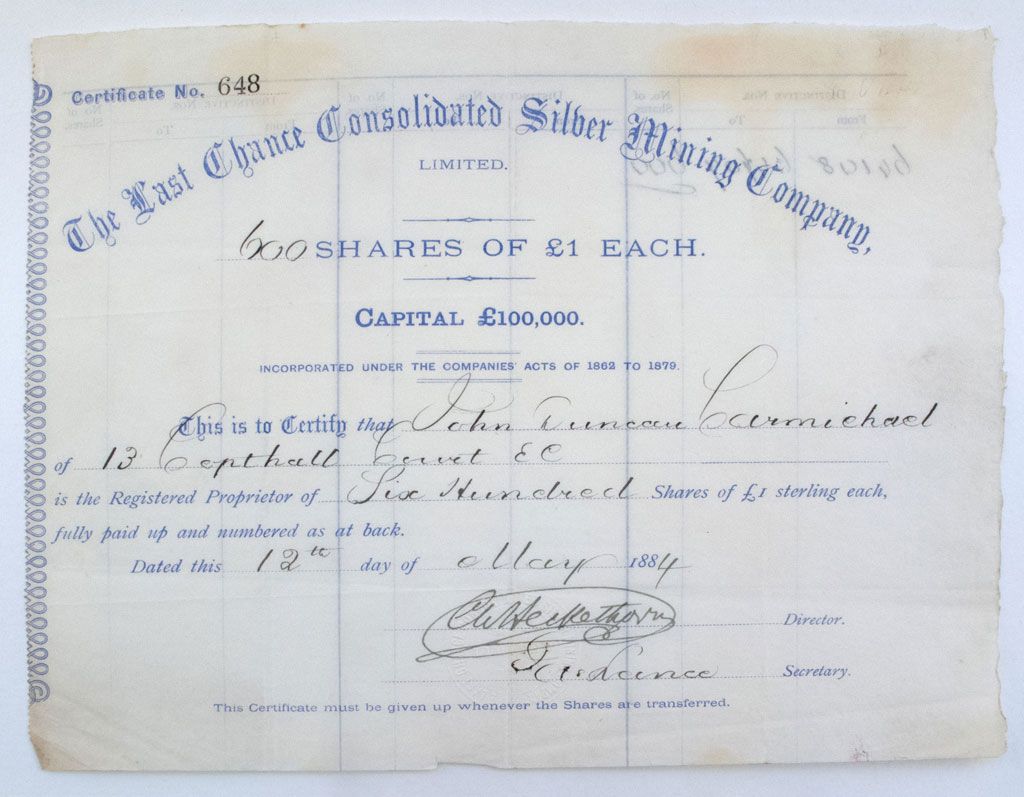 Certificate No. 648
The Last Chance Consolidated Silver Mining Company,
LIMITED.
600 SHARES OF £1 EACH.
CAPITAL £100,000.
INCORPORATED UNDER THE COMPANIES' ACTS OF 1862 TO 1879.
This is to Certify that John Duncan Carmichael
of 13 Copthall Court EC
is the Registered Proprietor of Six Hundred Shares of £1 sterling each,
fully paid up and numbered as at back.
Dated this 12th day of May 1884
Director.
Secretary.
This Certificate must be given up whenever the Shares are transferred.